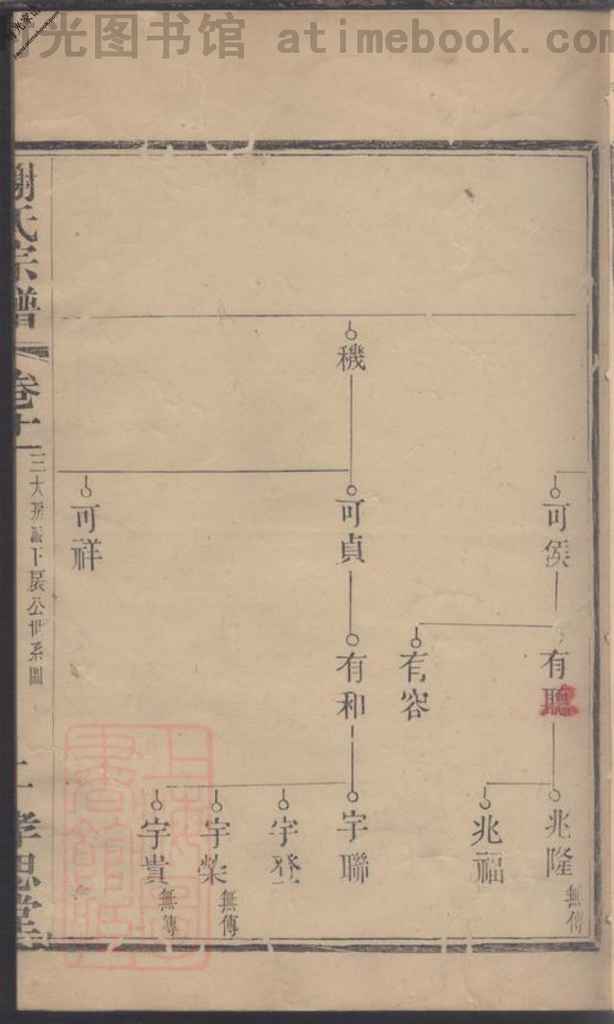 光图书馆 atimebook.com
可侯
有聽
兆隆
無傳
兆福
有容
穖
可貞
有和
字聯
字登
字榮
無傳
字貴
無傳
可祥
謝氏宗譜
卷十
三大房 下晟公世系圖
孝思堂